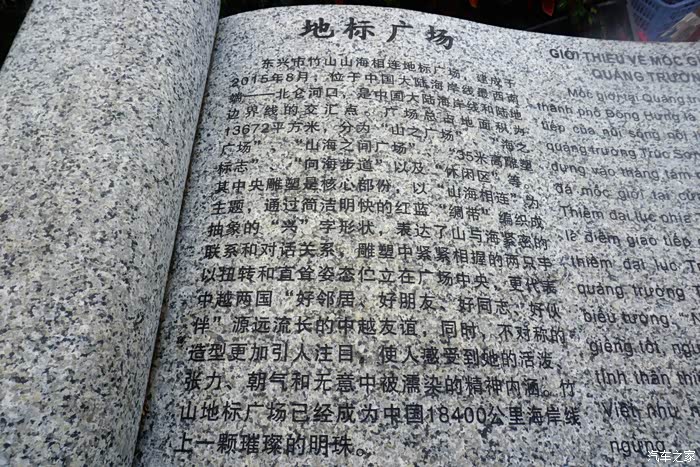 地标广场
东兴市竹山山海相连地标广场，建成于
2015年8月，位于中国大陆海岸线最西南
端——北仑河口，是中国大陆海岸线和陆地
边界线的交汇点。广场总占地面积为
13672平方米，分为“山之广场”、“海之
广场”、“山海之间广场”、“35米高雕塑
标志”、“向海步道”以及“休闲区”等。
其中央雕塑是核心部份，以“山海相连”为
主题，通过简洁明快的红蓝“绸带”编织成
抽象的“兴”字形状，表达了山与海紧密的
联系和对话关系，雕塑中紧紧相握的两只手
以扭转和直耸姿态伫立在广场中央，更代表
中越两国“好邻居、好朋友、好同志、好伙
伴”源远流长的中越友谊，同时，不对称的
造型更加引人注目，使人感受到她的活泼、
张力、朝气和无意中被濡染的精神内涵。竹
山地标广场已经成为中国18400公里海岸线
上一颗璀璨的明珠。
GIỚI THIỆU VỀ MỐC
QUẢNG TRƯỜ
Mốc giới tại Quảng
thành phố Đông Hưng
tiếp của nối sông
quảng trường Trúc
dựng vào tháng tám
đá mốc giới
Thiềm đại lục
lẽ điểm giao tiếp
thiềm đại lục
quảng trường
biểu tượng
giềng tốt,
tinh thần
Viên như
ngừng
汽车之家